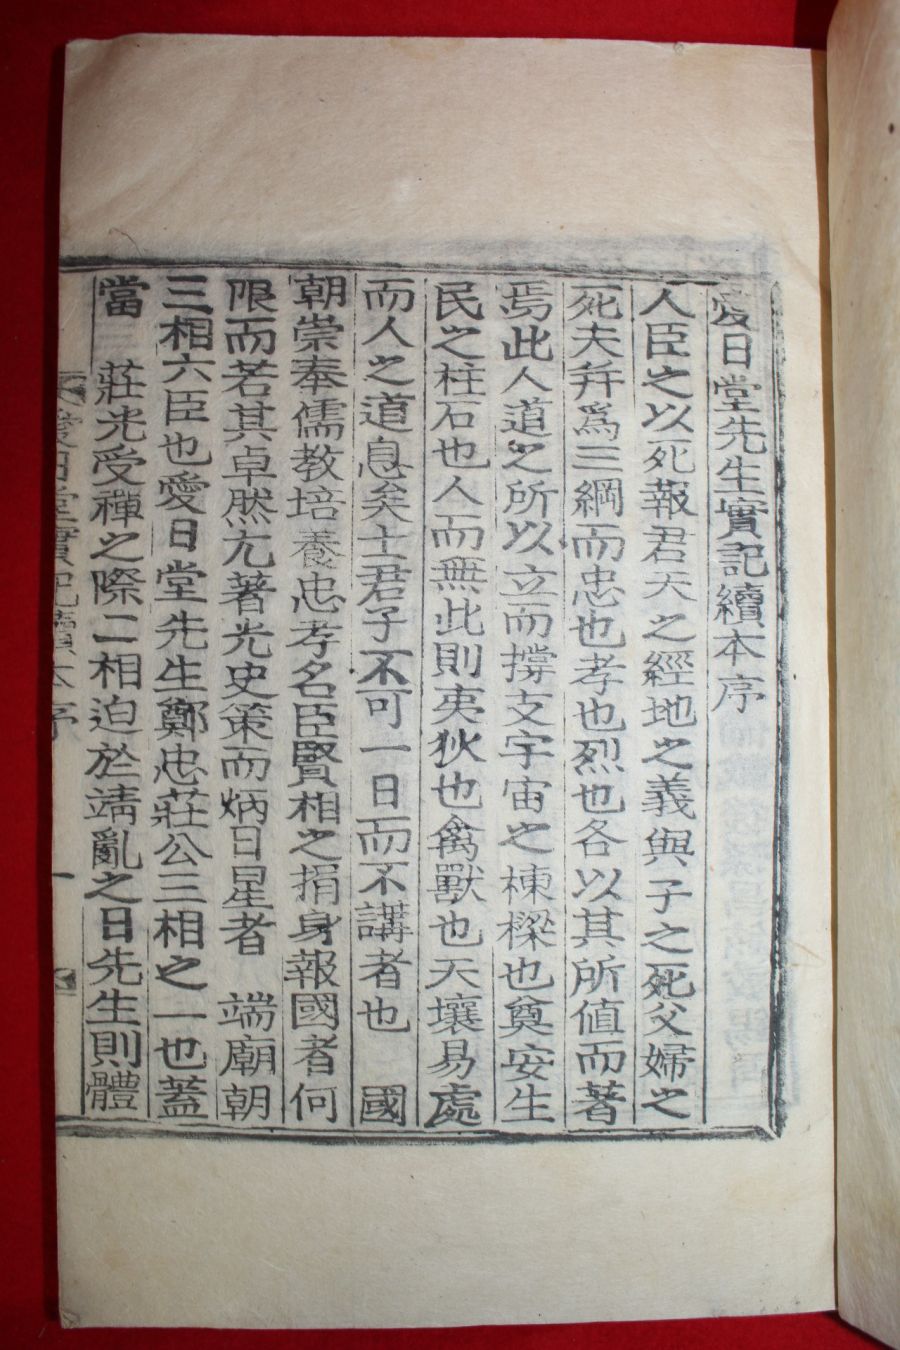 愛日堂先生實記續本序
人臣之以死報君天之經地之義與子之死父婦之
死夫幷爲三綱而忠也孝也烈也各以其所値而著
焉此人道之所以立而撐支宇宙之棟樑也奠安生
民之柱石也人而無此則夷狄也禽獸也天壤易處
而人之道息矣士君子不可一日而不講者也 國
朝崇奉儒教培養忠孝名臣賢相之捐身報國者何
限而若其卓然亢著光史策而炳日星者 端廟朝
三相六臣也愛日堂先生鄭忠莊公三相之一也蓋
當 莊光受禪之際二相迫於靖亂之日先生則體
愛日堂實記續本序 一